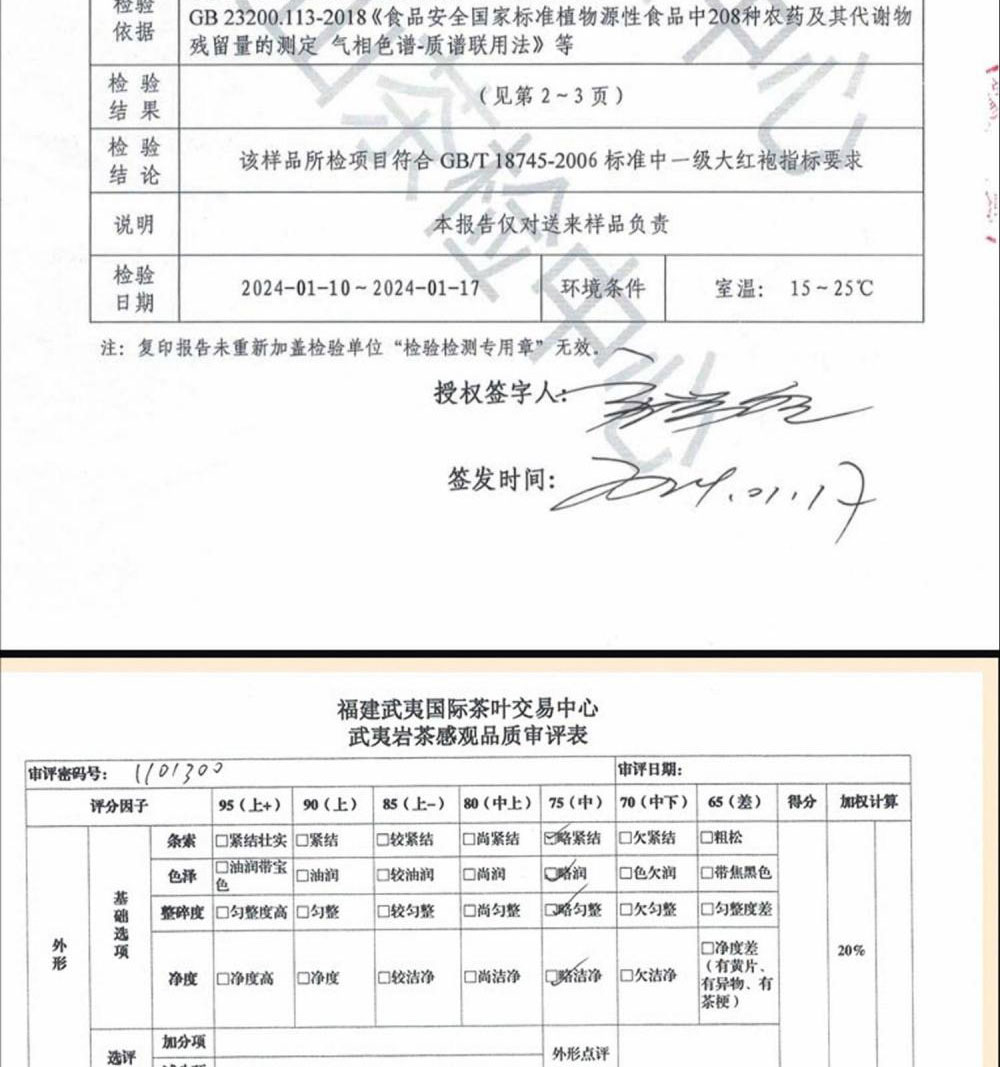 检验
依据
GB 23200.113-2018《食品安全国家标准植物源性食品中208种农药及其代谢物
残留量的测定 气相色谱-质谱联用法》等
检 验
结 果
（见第 2~3 页）
检 验
结 论
该样品所检项目符合 GB/T 18745-2006 标准中一级大红袍指标要求
说明
本报告仅对送来样品负责
检验
日期
2024-01-10~2024-01-17
环境条件
室温： 15~25℃
注：复印报告未重新加盖检验单位“检验检测专用章”无效。
授权签字人：
签发时间：
2024.01.17
福建武夷国际茶叶交易中心
武夷岩茶感观品质审评表
审评密码号： 1101300
审评日期：
评分因子 95（上+） 90（上） 85（上-） 80（中上） 75（中） 70（中下） 65（差） 得分 加权计算
外形
基础选项
条索 □紧结壮实 □紧结 □较紧结 □尚紧结 ☑略紧结 □欠紧结 □粗松
色泽 □油润带宝色 □油润 □较油润 □尚润 ☑略润 □色欠润 □带焦黑色
整碎度 □匀整度高 □匀整 □较匀整 □尚匀整 ☑略匀整 □欠匀整 □匀整度差
净度 □净度高 □净度 □较洁净 □尚洁净 ☑略洁净 □欠洁净 □净度差（有黄片、有异物、有茶梗）
20%
选评
加分项
外形点评